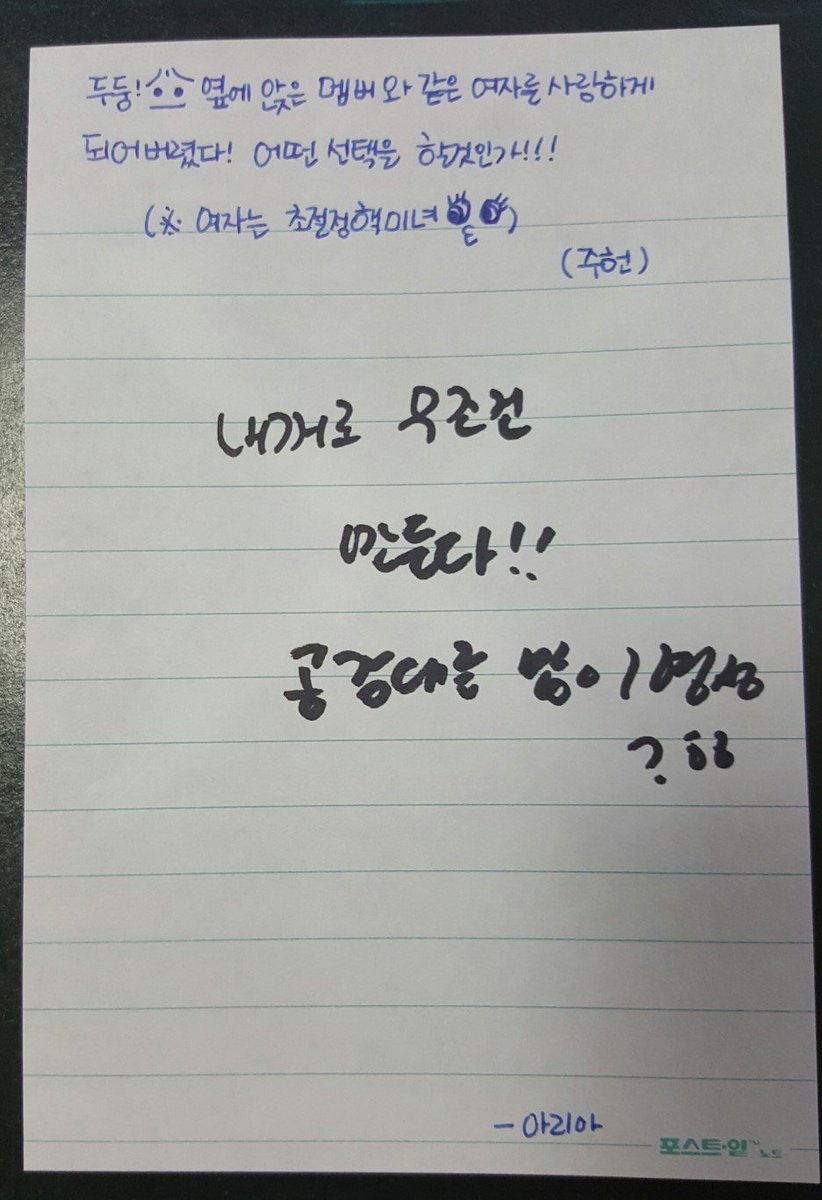 두둥! 옆에 앉은 멤버와 같은 여자를 사랑하게
되어버렸다! 어떤 선택을 할것인가!!!
(※ 여자는 초절정핵미녀)
(주헌)
내꺼로 무조건
만든다!!
- 아리아
포스트-잇™ 노트